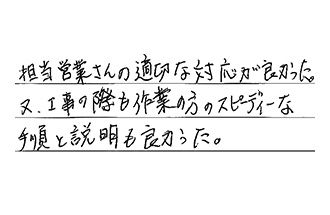 担当営業さんの適切な対応が良かった。
又、工事の際も作業の方のスピーディーな
手順と説明も良かった。